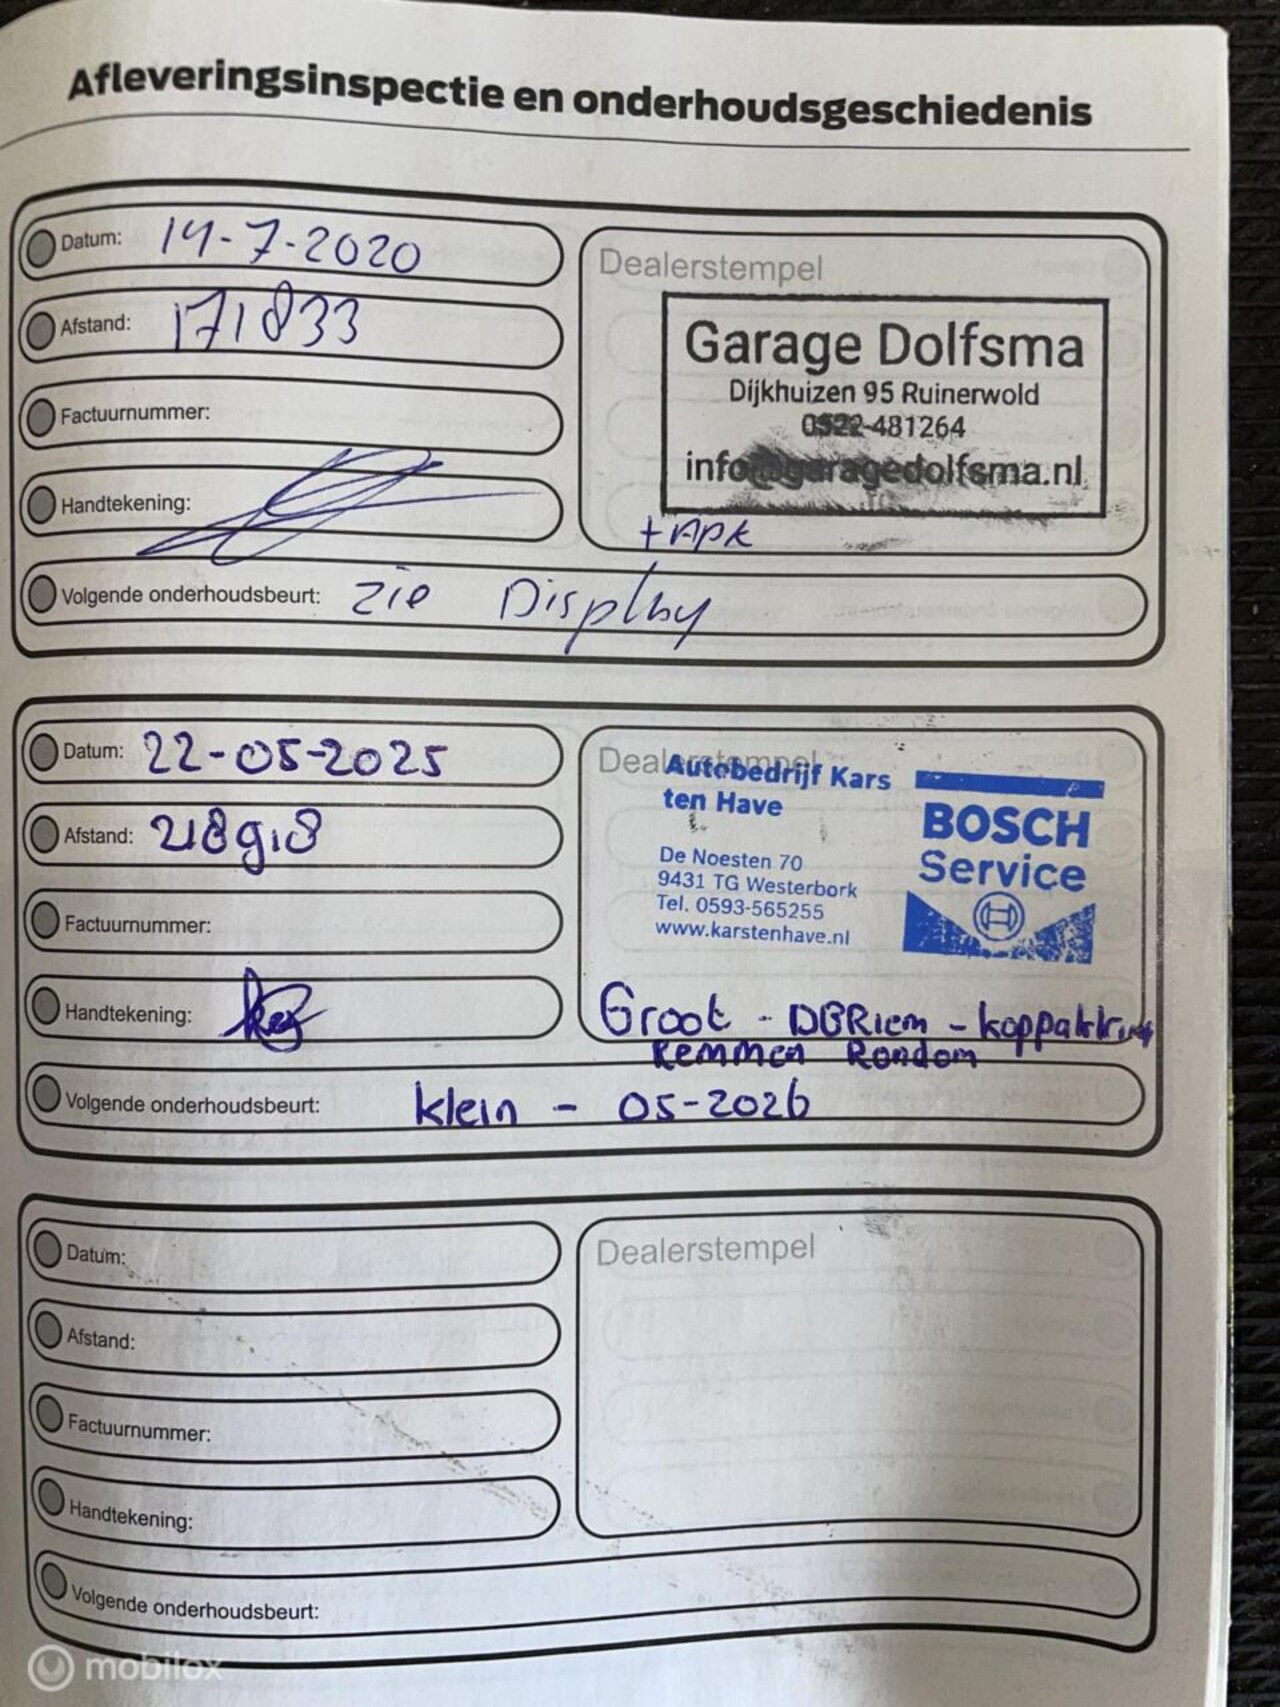 Afleveringsinspectie en onderhoudsgeschiedenis
Datum: 14-7-2020
Afstand: 171833
Factuurnummer:
Handtekening:
Volgende onderhoudsbeurt: zie Display
Dealerstempel
Garage Dolfsma
Dijkhuizen 95 Ruinerwold
0522-481264
info@garagedolfsma.nl
+APK
Datum: 22-05-2025
Afstand: 218918
Factuurnummer:
Handtekening:
Volgende onderhoudsbeurt: klein - 05-2026
Dealerstempel
Autobedrijf Kars
ten Have
De Noesten 70
9431 TG Westerbork
Tel. 0593-565255
www.karstenhave.nl
BOSCH
Service
Groot - DBRiem - koppakking
Remmen Rondom
Datum:
Afstand:
Factuurnummer:
Handtekening:
Volgende onderhoudsbeurt:
Dealerstempel
mobilox